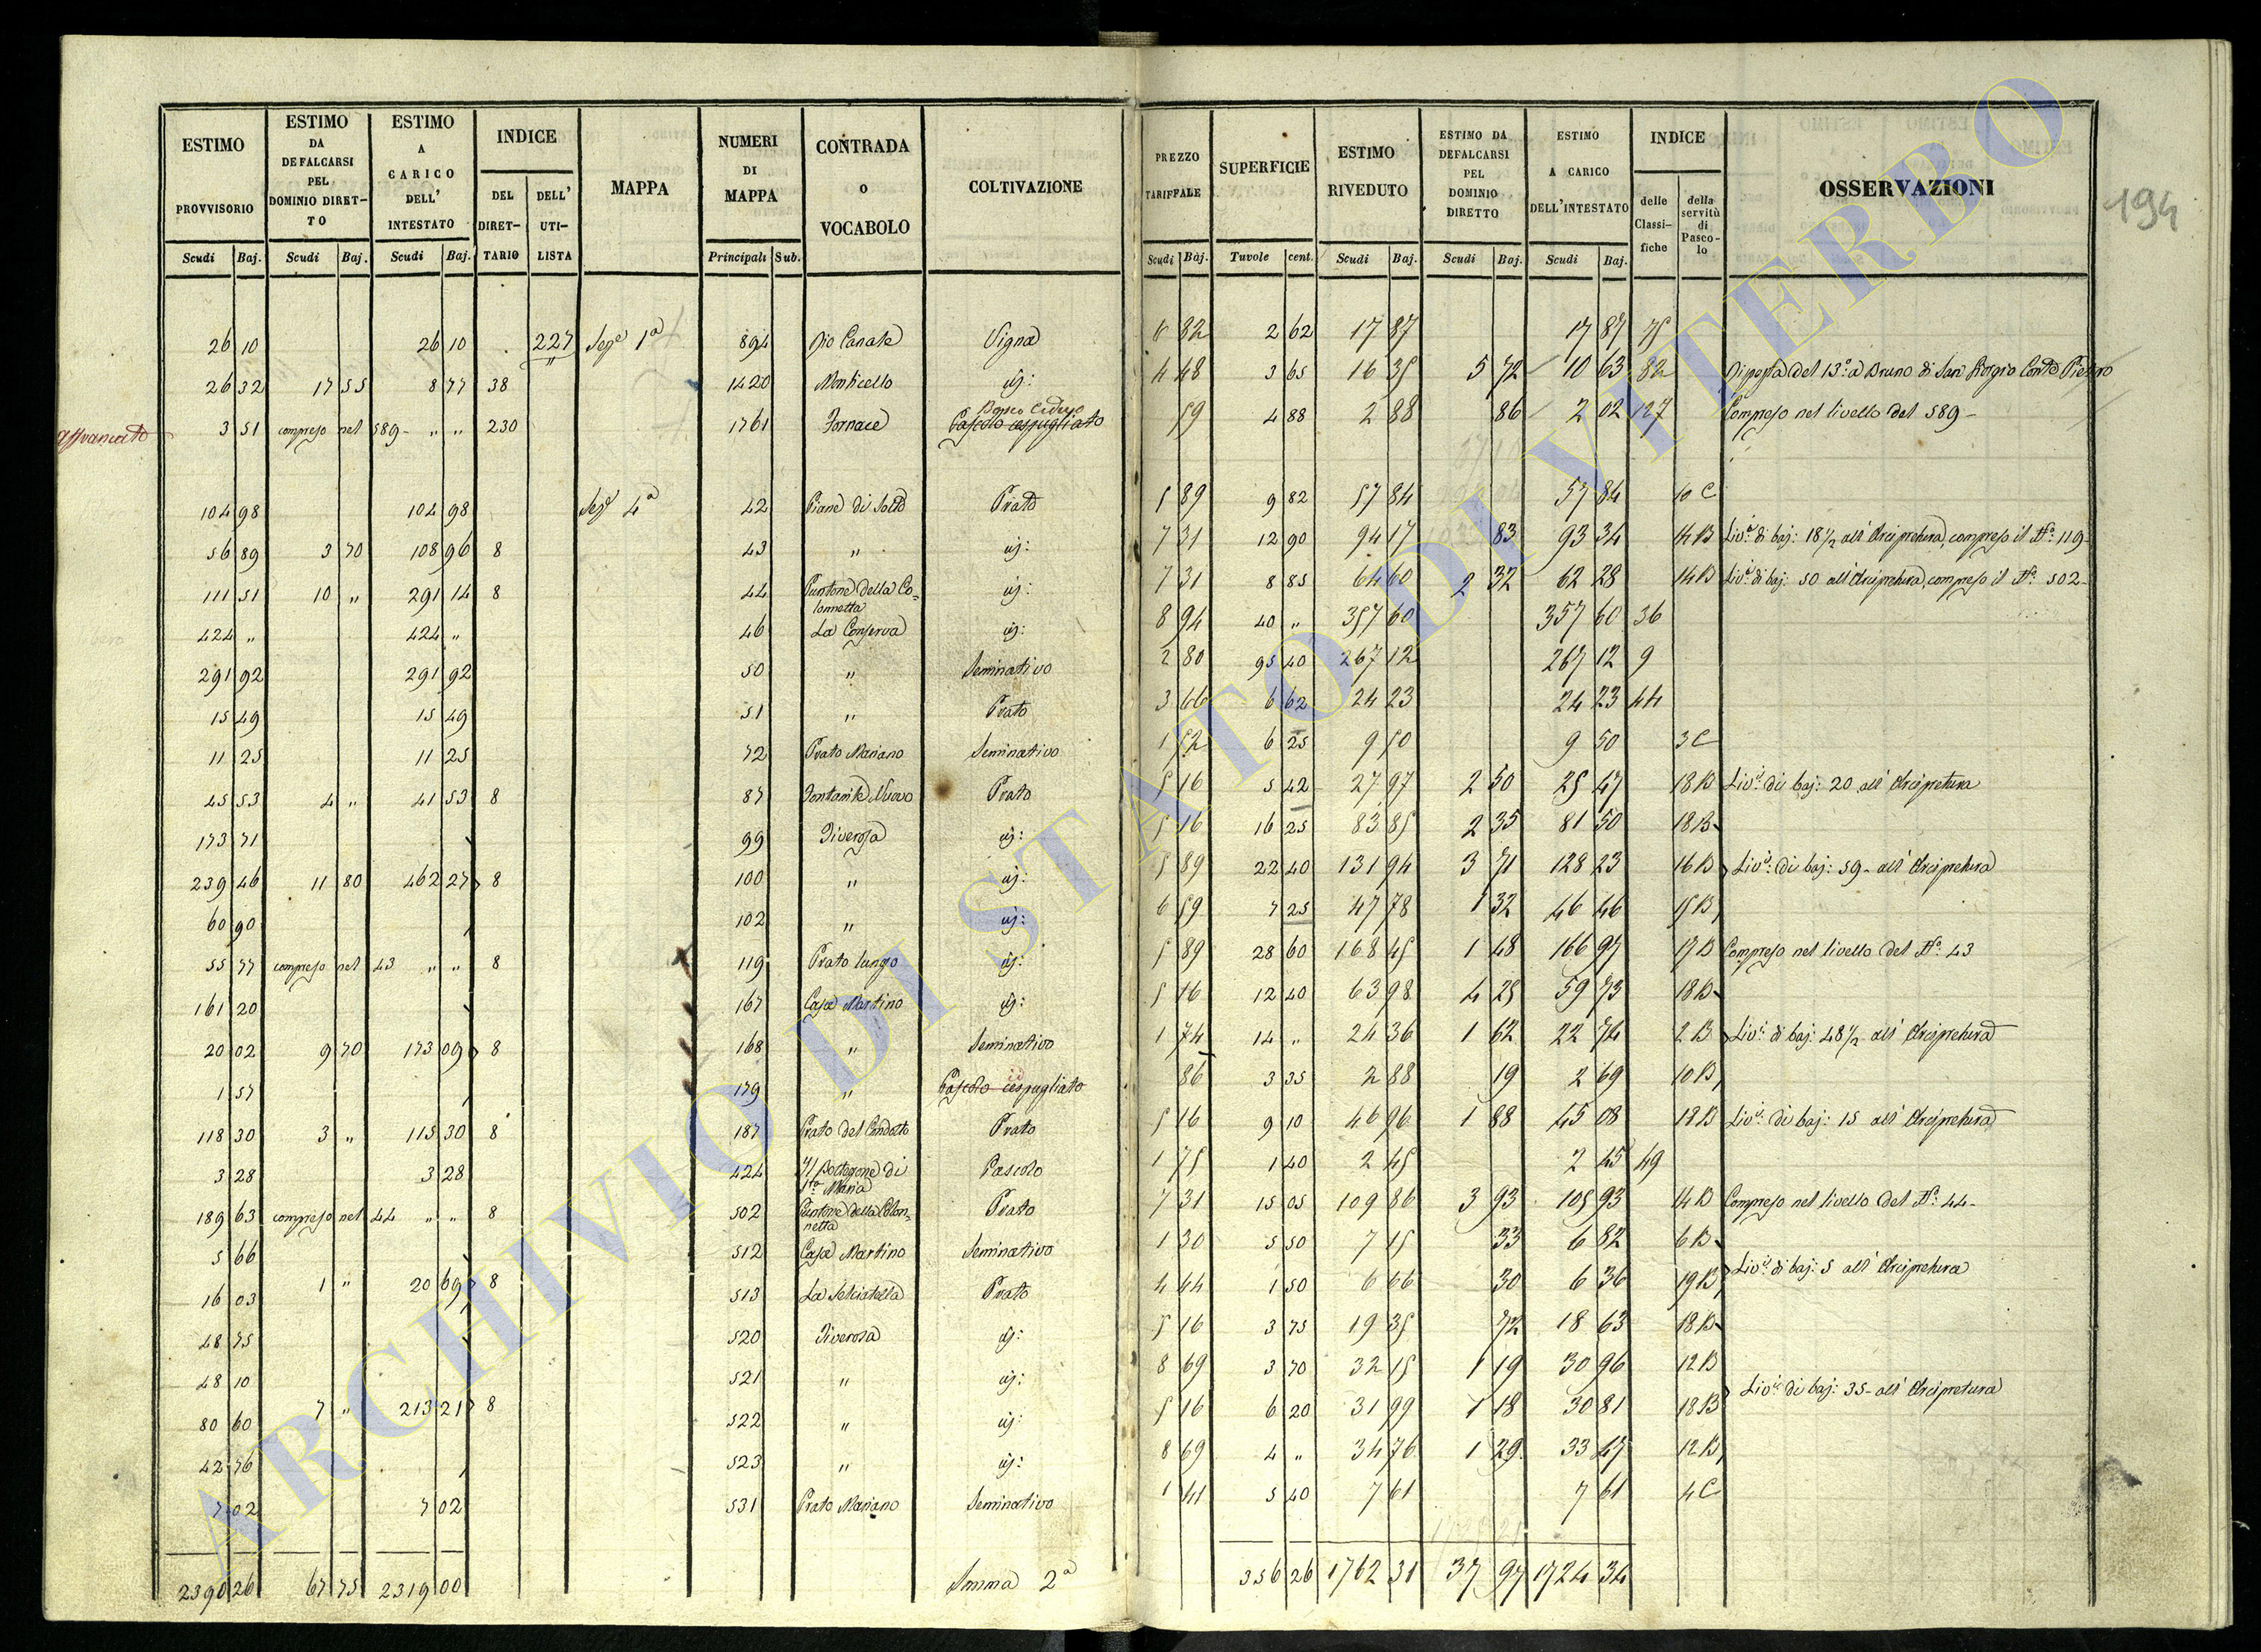 ESTIMO PROVVISORIO Scudi Baj.
ESTIMO DA DEFALCARSI PEL DOMINIO DIRETTO Scudi Baj.
ESTIMO A CARICO DELL' INTESTATO Scudi Baj.
INDICE DEL DIRETTARIO DELL' UTILISTA
MAPPA
NUMERI DI MAPPA Principali Sub.
CONTRADA O VOCABOLO
COLTIVAZIONE
PREZZO TARIFFALE Scudi Baj.
SUPERFICIE Tavole cent.
ESTIMO RIVEDUTO Scudi Baj.
ESTIMO DA DEFALCARSI PEL DOMINIO DIRETTO Scudi Baj.
ESTIMO A CARICO DELL'INTESTATO Scudi Baj.
INDICE delle Classifiche della servitù di Pascolo
OSSERVAZIONI
194
26 10 26 10 227 Sez.e 1a 894 Rio Canale Vigna 6 82 2 62 17 87 17 87 75
26 32 17 55 8 77 38 1420 Monticello id: 4 48 3 65 16 35 5 72 10 63 82
Bosco Ceduo
affrancato 3 51 compreso nel 589 - " " 230 1761 Fornace Pascolo cespugliato 59 4 88 2 88 86 2 02 127 Compreso nel livello del 589 -
104 98 104 98 Sez.e 4a 42 Piane di Sotto Prato 5 89 9 82 57 84 57 84 10 C
56 89 3 70 108 96 8 43 " id: 7 31 12 90 94 17 83 93 34 14 B Liv.o di baj: 18 1/2 all' Arcipretura, compreso il N.o 119
111 51 10 " 291 14 8 44 Puntone della Colonnetta id: 7 31 8 85 64 60 2 32 62 28 14 B Liv.o di baj: 50 all' Arcipretura, compreso il N.o 502
424 " 424 " 46 La Conserva id: 8 94 40 " 357 60 357 60 36
291 92 291 92 50 " Seminativo 2 80 95 40 267 12 267 12 9
15 49 15 49 51 " Prato 3 66 6 62 24 23 24 23 44
11 25 11 25 72 Prato Mariano Seminativo 1 52 6 25 9 50 9 50 3 C
45 53 4 " 41 53 8 87 Fontanile Nuovo Prato 5 16 5 42 27 97 2 50 25 47 18 B Liv.o di baj: 20 all' Arcipretura
173 71 99 Piverosa id: 5 16 16 25 83 85 2 35 81 50 18 B
239 46 11 80 462 27 8 100 " id: 5 89 22 40 131 94 3 71 128 23 16 B Liv.o di baj: 59 - all' Arcipretura
60 90 102 " id: 6 59 7 25 47 78 1 32 46 46 15 B
55 77 compreso nel 43 " " 8 119 Prato lungo id: 5 89 28 60 168 45 1 48 166 97 17 B Compreso nel livello del N.o 43
161 20 167 Casa Martino id: 5 16 12 40 63 98 4 25 59 73 18 B
20 02 9 70 173 09 8 168 " Seminativo 1 74 14 " 24 36 1 62 22 74 2 B Liv.o di baj: 48 1/2 all' Arcipretura
1 57 179 " Pascolo cespugliato 86 3 35 2 88 19 2 69 10 B
118 30 3 " 115 30 8 187 Prato del Condotto Prato 5 16 9 10 46 96 1 88 45 08 18 B Liv.o di baj: 15 all' Arcipretura
3 28 3 28 424 di S.ta Maria Pascolo 1 75 1 40 2 45 2 45 49
189 63 compreso nel 44 " " 8 502 Puntone della Colonnetta Prato 7 31 15 05 109 86 3 93 105 93 14 B Compreso nel livello del N.o 44 -
5 66 512 Casa Martino Seminativo 1 30 5 50 7 15 33 6 82 6 B
16 03 1 " 20 69 8 513 La Selciatella Prato 4 44 1 50 6 66 30 6 36 19 B Liv.o di baj: 5 all' Arcipretura
48 75 520 Piverosa id: 5 16 3 75 19 35 72 18 63 18 B
48 10 521 " id: 8 69 3 70 32 15 1 19 30 96 12 B
80 60 7 " 213 21 8 522 " id: 5 16 6 20 31 99 1 18 30 81 18 B Liv.o di baj: 35 - all' Arcipretura
42 76 523 " id: 8 69 4 " 34 76 1 29 33 47 12 B
7 02 7 02 531 Prato Mariano Seminativo 1 41 5 40 7 61 7 61 4 C
2390 26 67 75 2319 00 Somma 2a 356 26 1762 31 37 97 1724 34
ARCHIVIO DI STATO DI VITERBO